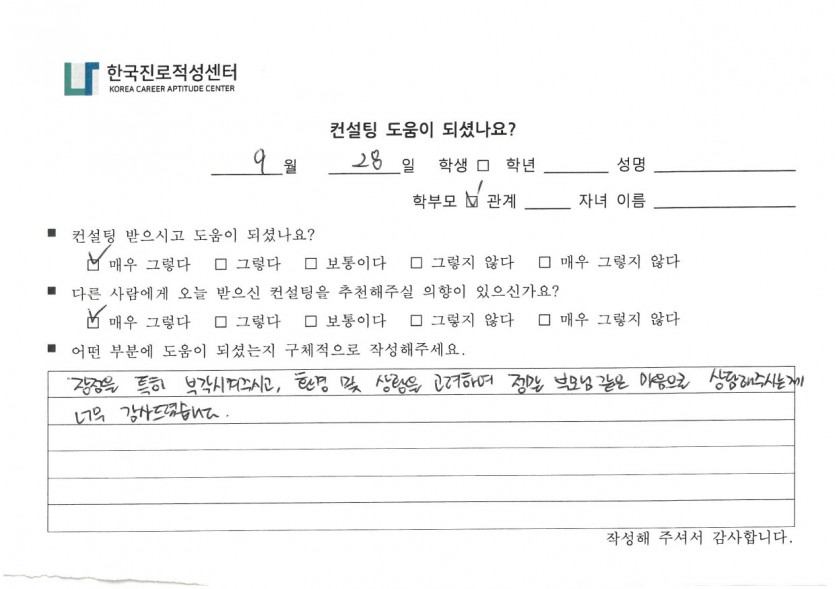 한국진로적성센터
KOREA CAREER APTITUDE CENTER
컨설팅 도움이 되셨나요?
9월 28일 학생 □ 학년 ______ 성명 ______
학부모 ☑ 관계 ______ 자녀 이름 ______
■ 컨설팅 받으시고 도움이 되셨나요?
☑ 매우 그렇다 □ 그렇다 □ 보통이다 □ 그렇지 않다 □ 매우 그렇지 않다
■ 다른 사람에게 오늘 받으신 컨설팅을 추천해주실 의향이 있으신가요?
☑ 매우 그렇다 □ 그렇다 □ 보통이다 □ 그렇지 않다 □ 매우 그렇지 않다
■ 어떤 부분에 도움이 되셨는지 구체적으로 작성해주세요.
장점을 특히 부각시켜주시고, 환경 및 상황을 고려하며 정말 부모님 같은 마음으로 상담해주시는게
너무 감사드렸습니다.
작성해 주셔서 감사합니다.